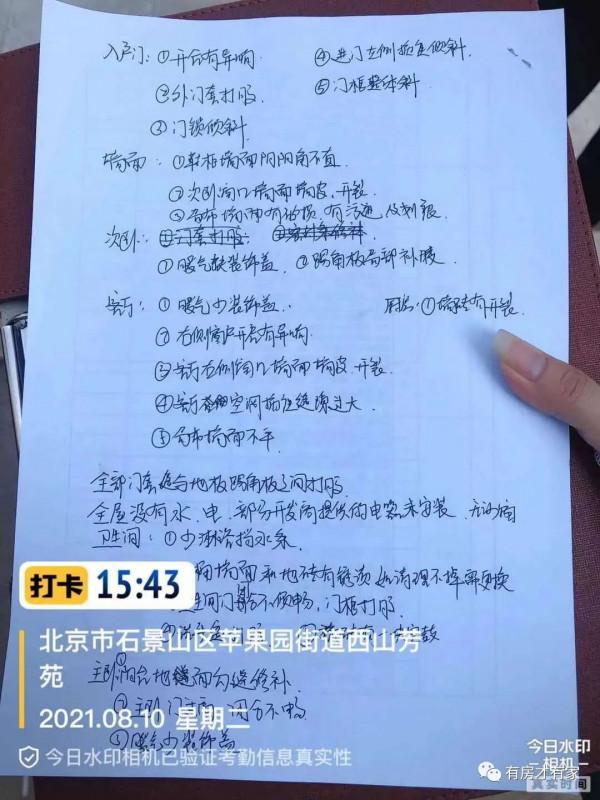 入户门: ①开合有异响 ④进门左侧
②外门套打胶 ⑤门框整体斜
③门锁倾斜
墙面: ①鞋柜墙面阴阳角不直
②次卧窗口墙面墙皮.开裂
③局部墙面有破损.有污迹及划痕
次卧:
①暖气缺装饰盖 ②踢角板局部补胶
客厅: ①暖气少装饰盖. 厨房:①墙砖有开裂
②右侧窗户开启有异响
③客厅右侧窗口墙面墙皮.开裂
④客厅空调插座缝隙过大
⑤局部墙面不平
全部门套与地板踢角板之间打胶
全屋没有水、电、部分开发商提供的电器未安装
卫生间: ①少淋浴挡水条
墙面和地砖有缝须如清理不掉需更换
不顺畅,门框打胶.
主卧阳台地面勾缝修补
开合不畅
③暖气少装饰盖
打卡 15:43
北京市石景山区苹果园街道西山芳苑
2021.08.10 星期二
今日水印相机已验证考勤信息真实性
今日水印
-相机-
真实时间
有房才有家